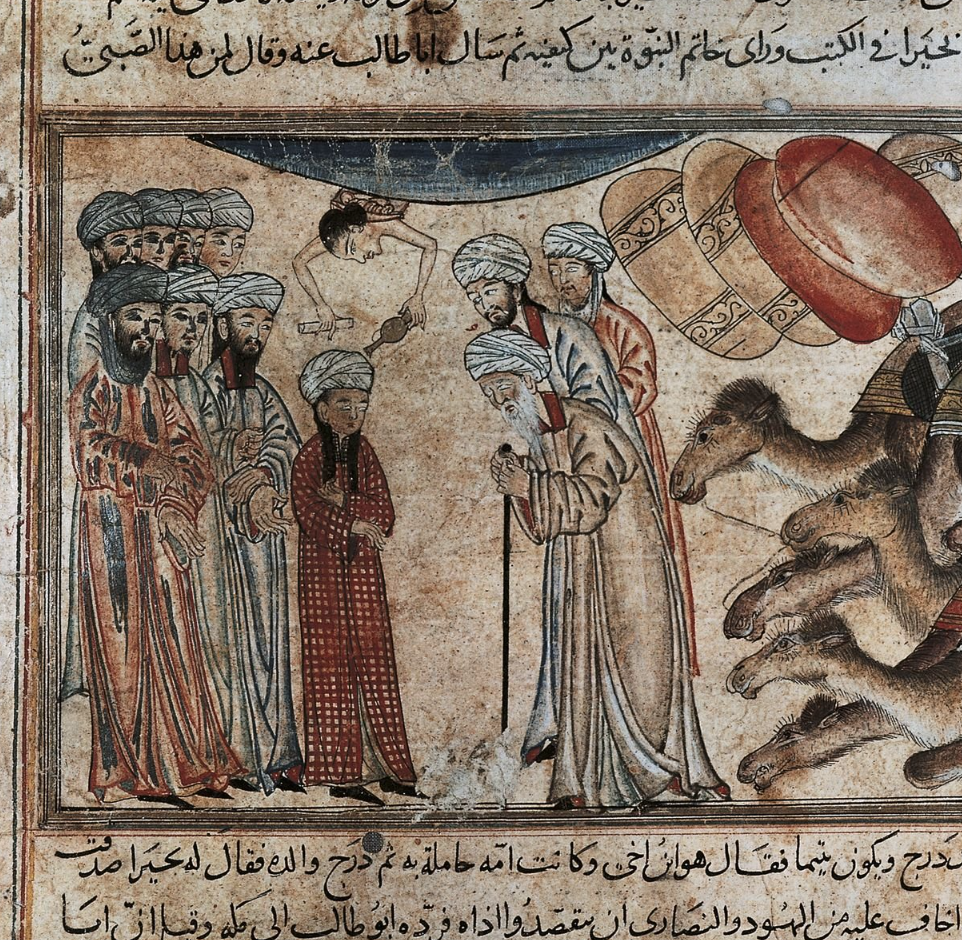 بحيرا في الكتب وراى خاتم النبوة بين كتفيه ثم سال ابا طالب عنه وقال لمن هذا الصبي
درج ويكون يتيما فقال هو ابن اخي وكانت امه حاملة به ثم درج والده فقال له بحيرا صدقت
اخاف عليه من اليهود والنصارى ان يقصدوا اذاه فرده ابو طالب الى مكة وقيل ان